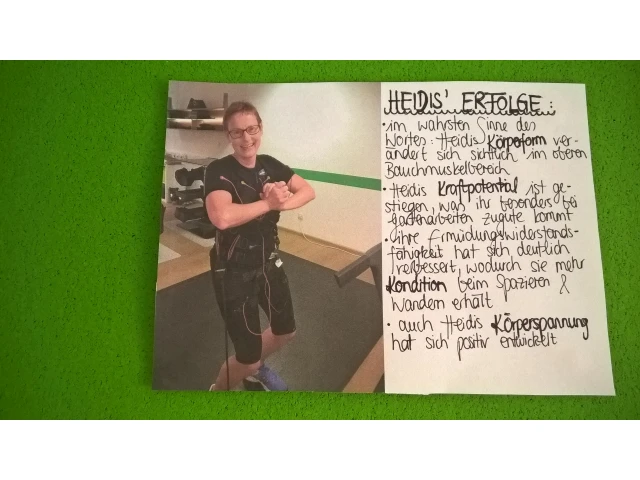 HEIDIS' ERFOLGE:
• im wahrsten Sinne des
Wortes: Heidis Körperform ver-
ändert sich sichtlich im oberen
Bauchmuskelbereich
• Heidis Kraftpotential ist ge-
stiegen, was ihr besonders bei
Gartenarbeiten zugute kommt
• ihre Ermüdungswiderstands-
fähigkeit hat sich deutlich
verbessert, wodurch sie mehr
Kondition beim Spazieren &
Wandern erhält
• auch Heidis Körperspannung
hat sich positiv entwickelt